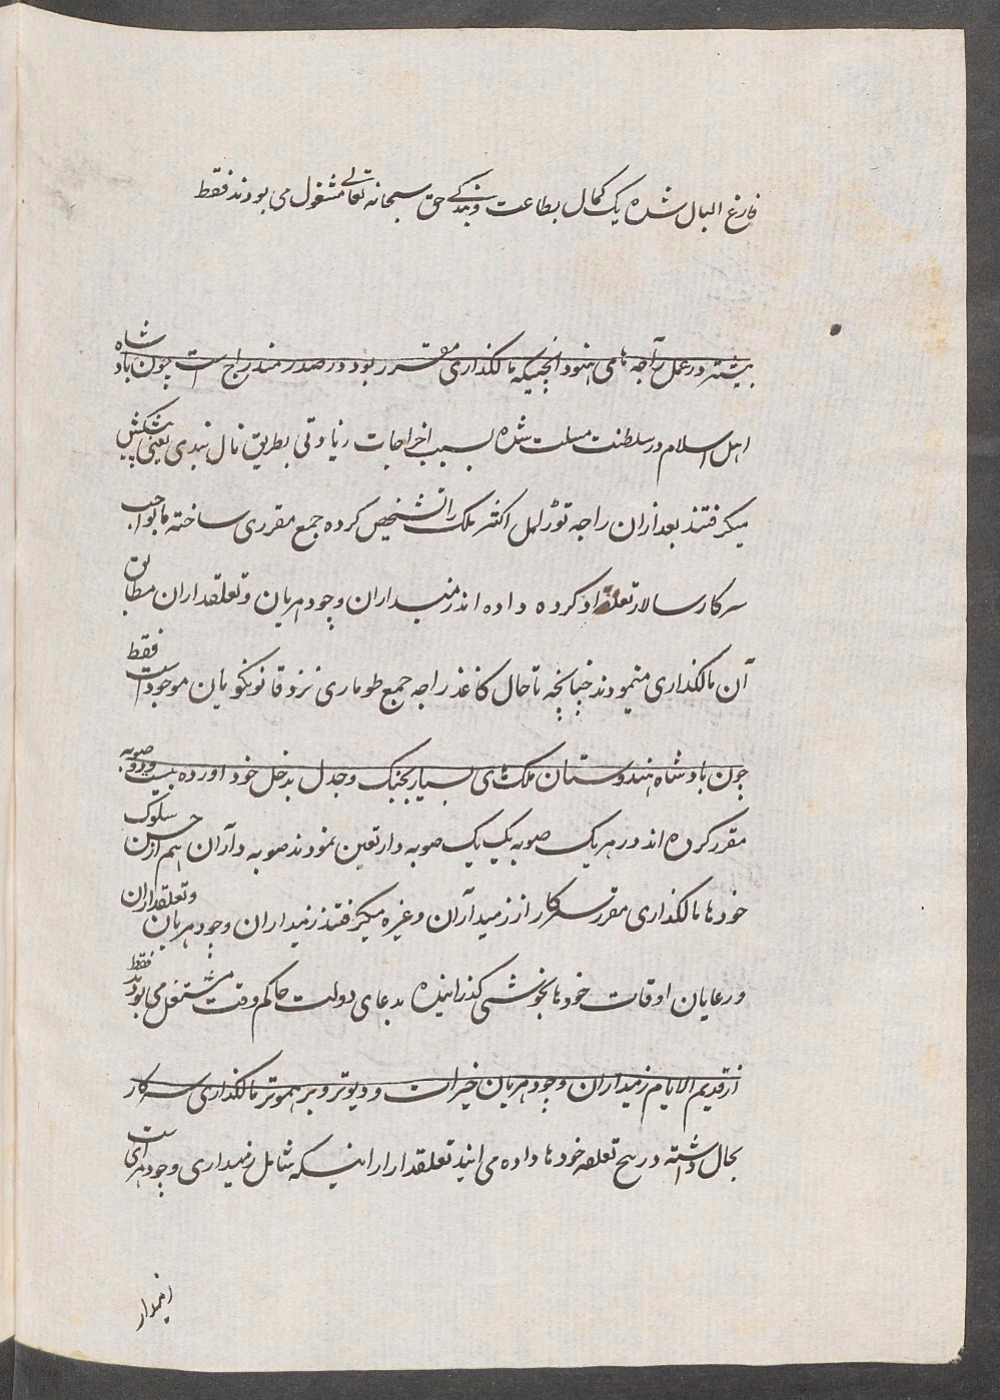 فارغ البال شده یک کمال بطاعت و بندگی حق سبحانه تعالی مشغول می بودند فقط
بیشتر در عمل راجه های هنود آنچیکه مالکذاری مقرر بود در صدر مندرج است چون بادشاه
اهل اسلام در سلطنت مسلت شده بسبب اخراجات زیادتی بطریق نال بندی یعنی پیشکش
میکرفتند بعد ازان راجه توڑلمل اکثر ملک را تشخیص کرده جمع مقرری ساخته مابواجب
سرکار سالار تعلقداد کرده داده اند زمیداران و چودهریان و تعلقداران مطابق
آن مالکذاری مینمودند چنانچه تا حال کاغذ راجه جمع طوماری نزد قانونکویان موجود است فقط
چون بادشاه هندوستان ملک های بسیار بجنک و جدل بدخل خود اورده بیست و دو صوبه
مقرر کرده اند در هر یک صوبه یک یک صوبه دار تعین نمودند صوبه داران هم از حسن سلوک
خودها مالکذاری مقرر سرکار از زمیداران وغیره میکرفتند زمیداران و چودهریان و تعلقداران
و رعایان اوقات خودها بخوشی کذرانیده بدعای دولت حاکم وقت مشتغل می بودند فقط
از قدیم الایام زمیداران و چودهریان خیرات و دیوتر و برهموتر مالکذاری سرکار
بحال داشته در بیح تعلقه خودها داده می ایند تعلقدار را اینکه شامل زمیداری و چودهرای است
زمیدار